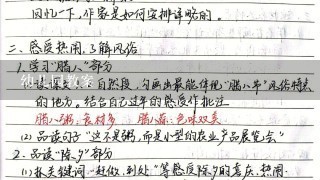 回忆一下,作家是如何安排详略的。
二、感受热闹,了解风俗
1.学习“腊八”部分
自然段,勾画出最能体现“腊八节”风俗特点
的地方。结合自己过年的感受作批注
腊八粥:食材多 腊八蒜:色味双美
(2)品读句子“这不是粥,而是小型的农业产品展览会”
2.品读“除夕”部分
(1)抓关键词“赶做、到处”等感受除夕的喜庆、热闹
幼儿园教案